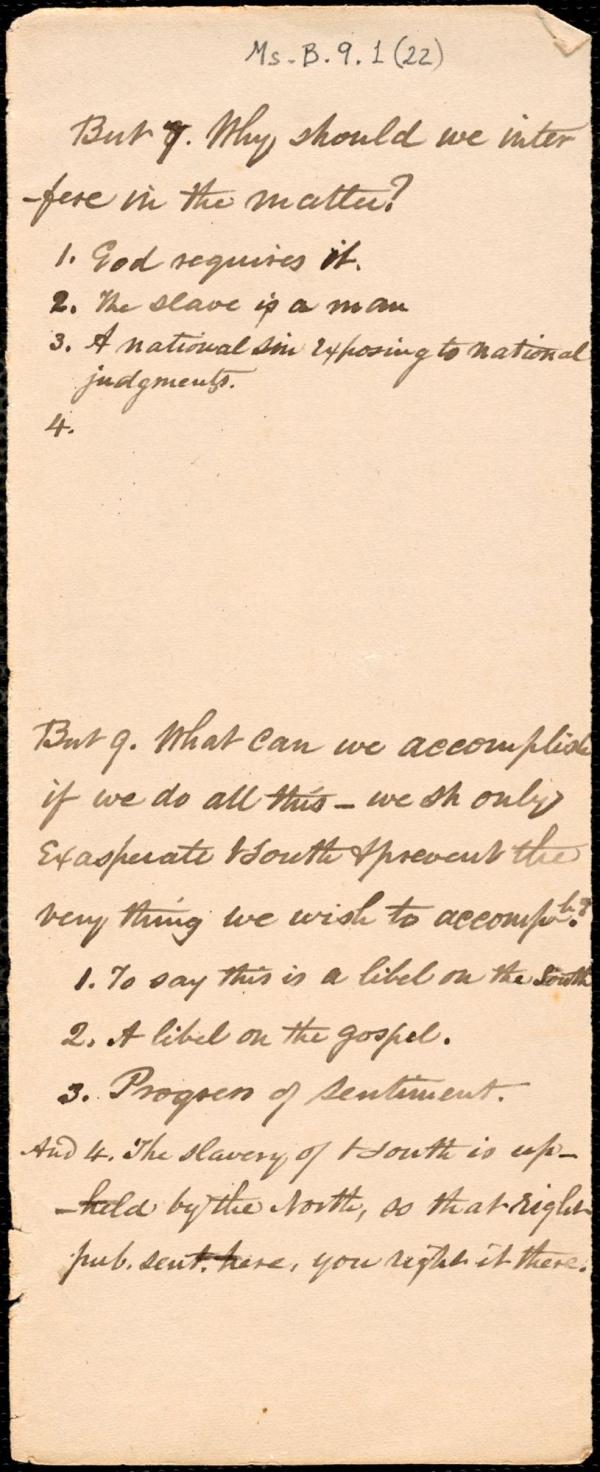 Ms. B. 9. 1 (22)
But q. Why should we inter
-fere in the matter?
1. God requires it.
2. The slave is a man
3. A national sin exposing to national
judgments.
4.
But q. What can we accomplish
if we do all this - we sh only
exasperate t South & prevent the
very thing we wish to accomph.?
1. To say this is a libel on the South
2. A libel on the gospel.
3. Progress of sentiment.
And 4. The slavery of t South is up-
-held by the North, so that right
pub. sent. here, you right it there.